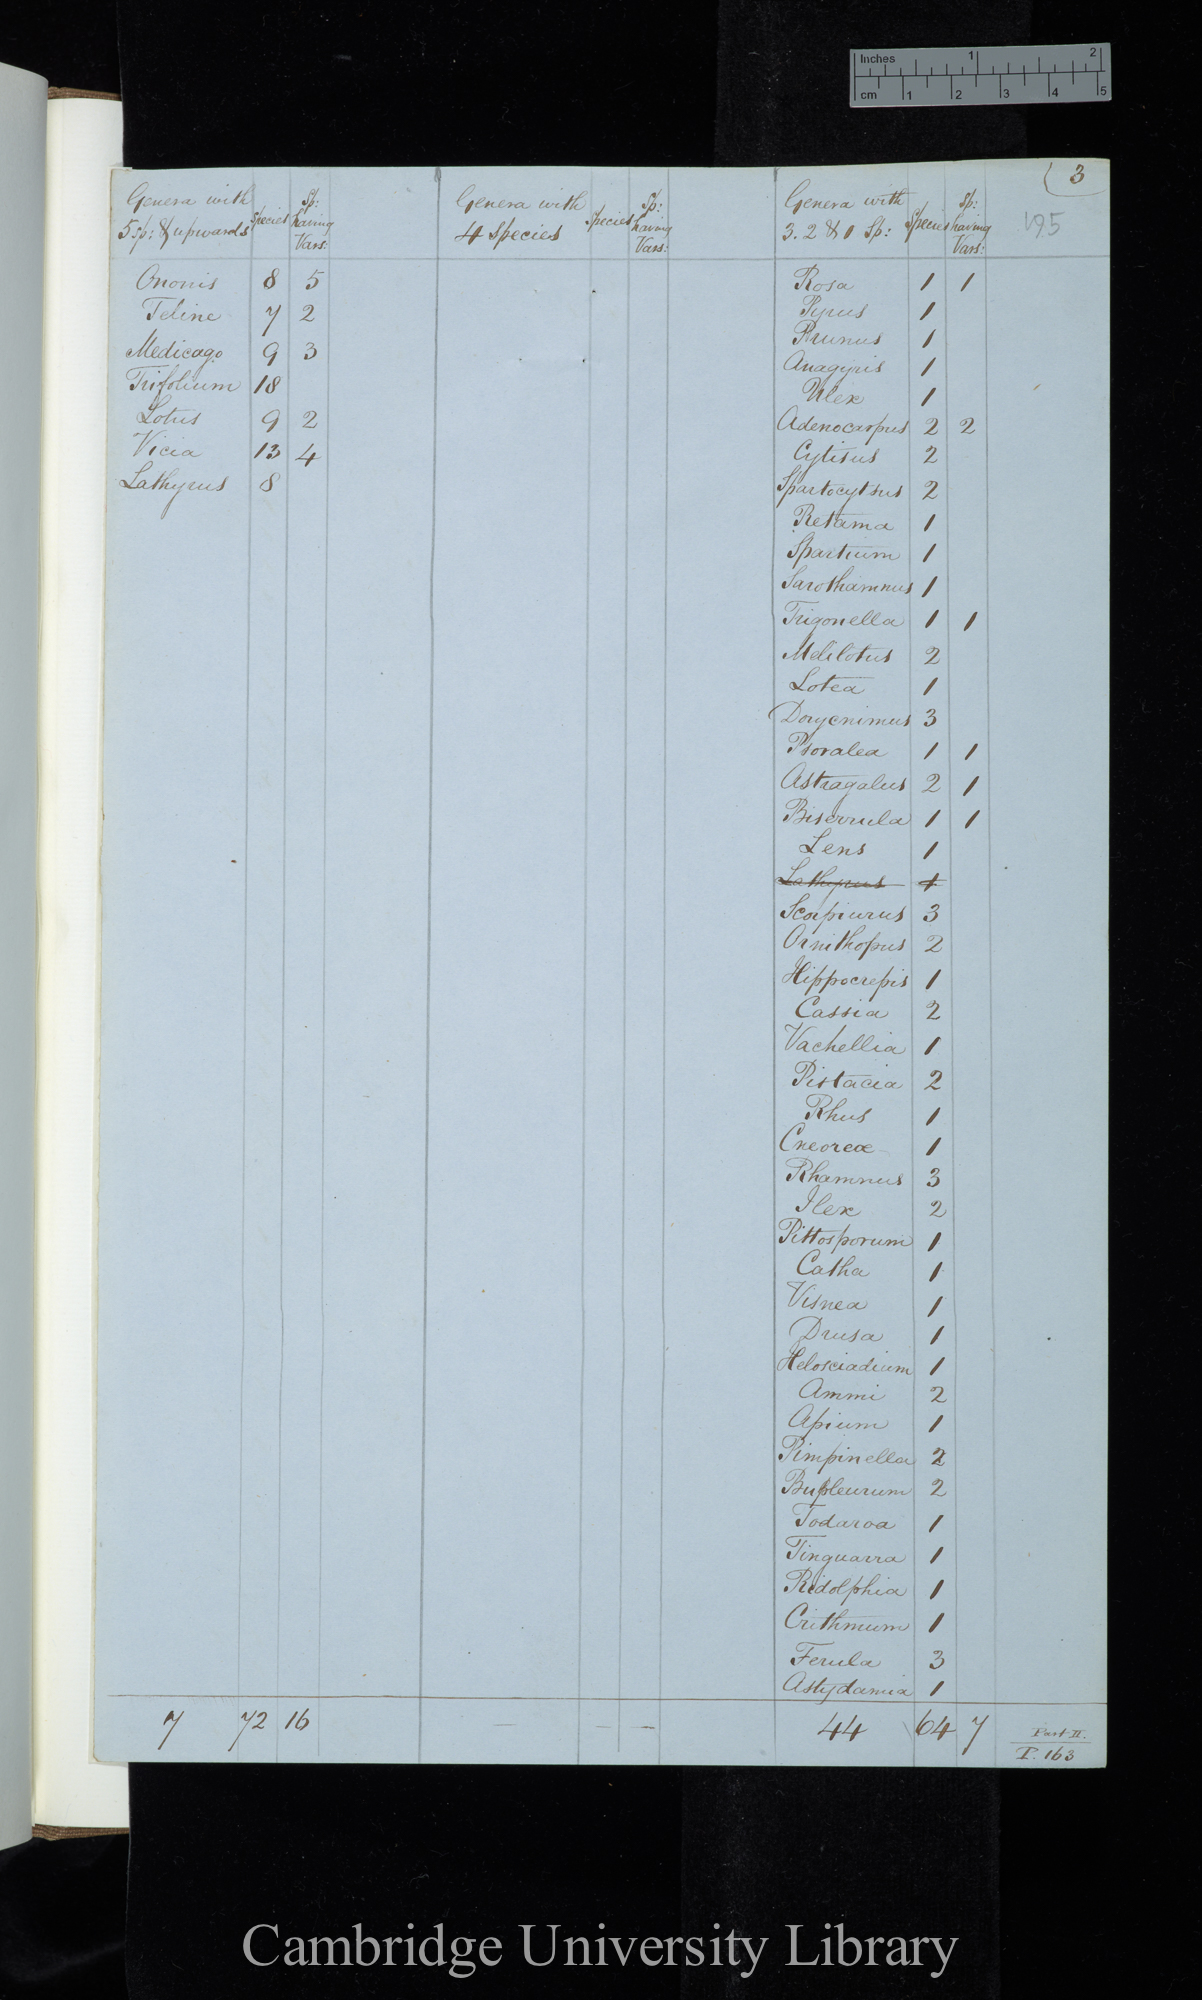 Inches 1 2
cm 1 2 3 4 5
3
195
Genera with 5 sp: & upwards | Species | Sp: having Vars:
Ononis 8 5
Teline 7 2
Medicago 9 3
Trifolium 18
Lotus 9 2
Vicia 13 4
Lathyrus 8
7 72 16
Genera with 4 Species | Species | Sp: having Vars:
— — —
Genera with 3. 2 & 1 Sp: | Species | Sp: having Vars:
Rosa 1 1
Pyrus 1
Prunus 1
Anagyris 1
Ulex 1
Adenocarpus 2 2
Cytisus 2
Spartocytsus 2
Retama 1
Spartium 1
Sarothamnus 1
Trigonella 1 1
Melilotus 2
Lotea 1
Dorycnimus 3
Psoralea 1 1
Astragalus 2 1
Biserrula 1 1
Lens 1
Lathyrus 1
Scorpiurus 3
Ornithopus 2
Hippocrepis 1
Cassia 2
Vachellia 1
Pistacia 2
Rhus 1
Cneoreæ 1
Rhamnus 3
Ilex 2
Pittosporum 1
Catha 1
Visnea 1
Drusa 1
Helosciadium 1
Ammi 2
Apium 1
Pimpinella 2
Bupleurum 2
Todaroa 1
Tinguarra 1
Ridolphia 1
Crithmum 1
Ferula 3
Astydamia 1
44 64 7
Part II.
P. 163
Cambridge University Library